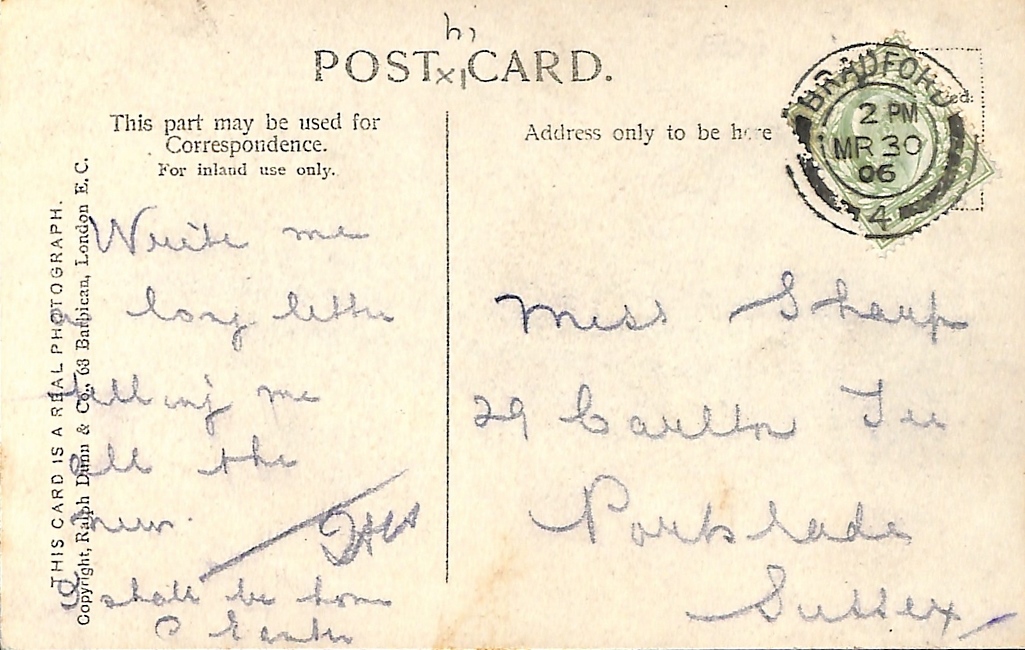 POST CARD.
This part may be used for
Correspondence.
For inland use only.
Address only to be here
BRADFORD
2 PM
MR 30
06
4
THIS CARD IS A REAL PHOTOGRAPH.
Copyright, Ralph Dunn & Co., 63 Barbican, London E. C.
Write me
a long letter
telling me
all the
news.
I shall be home
Easter
Miss Sharp
29 Carlton Ter
Portslade
Sussex